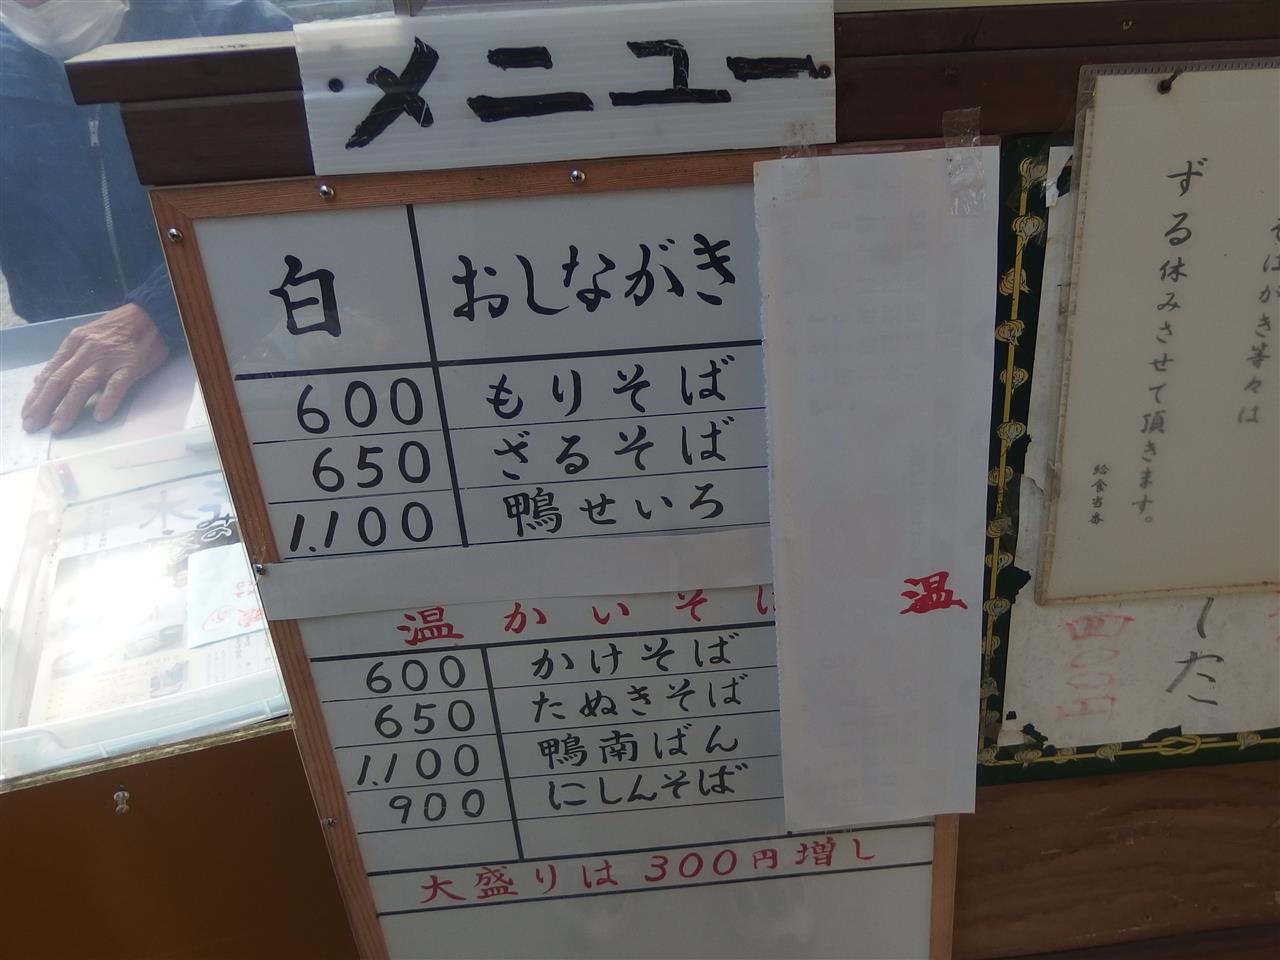 メニュー
白 おしながき
600 もりそば
650 ざるそば
1.100 鴨せいろ
温かいそ
600 かけそば
650 たぬきそば
1.100 鴨南ばん
900 にしんそば
大盛りは300円増し
温
そばがき等々は
ずる休みさせて頂きます。
給食当番
した
四00円